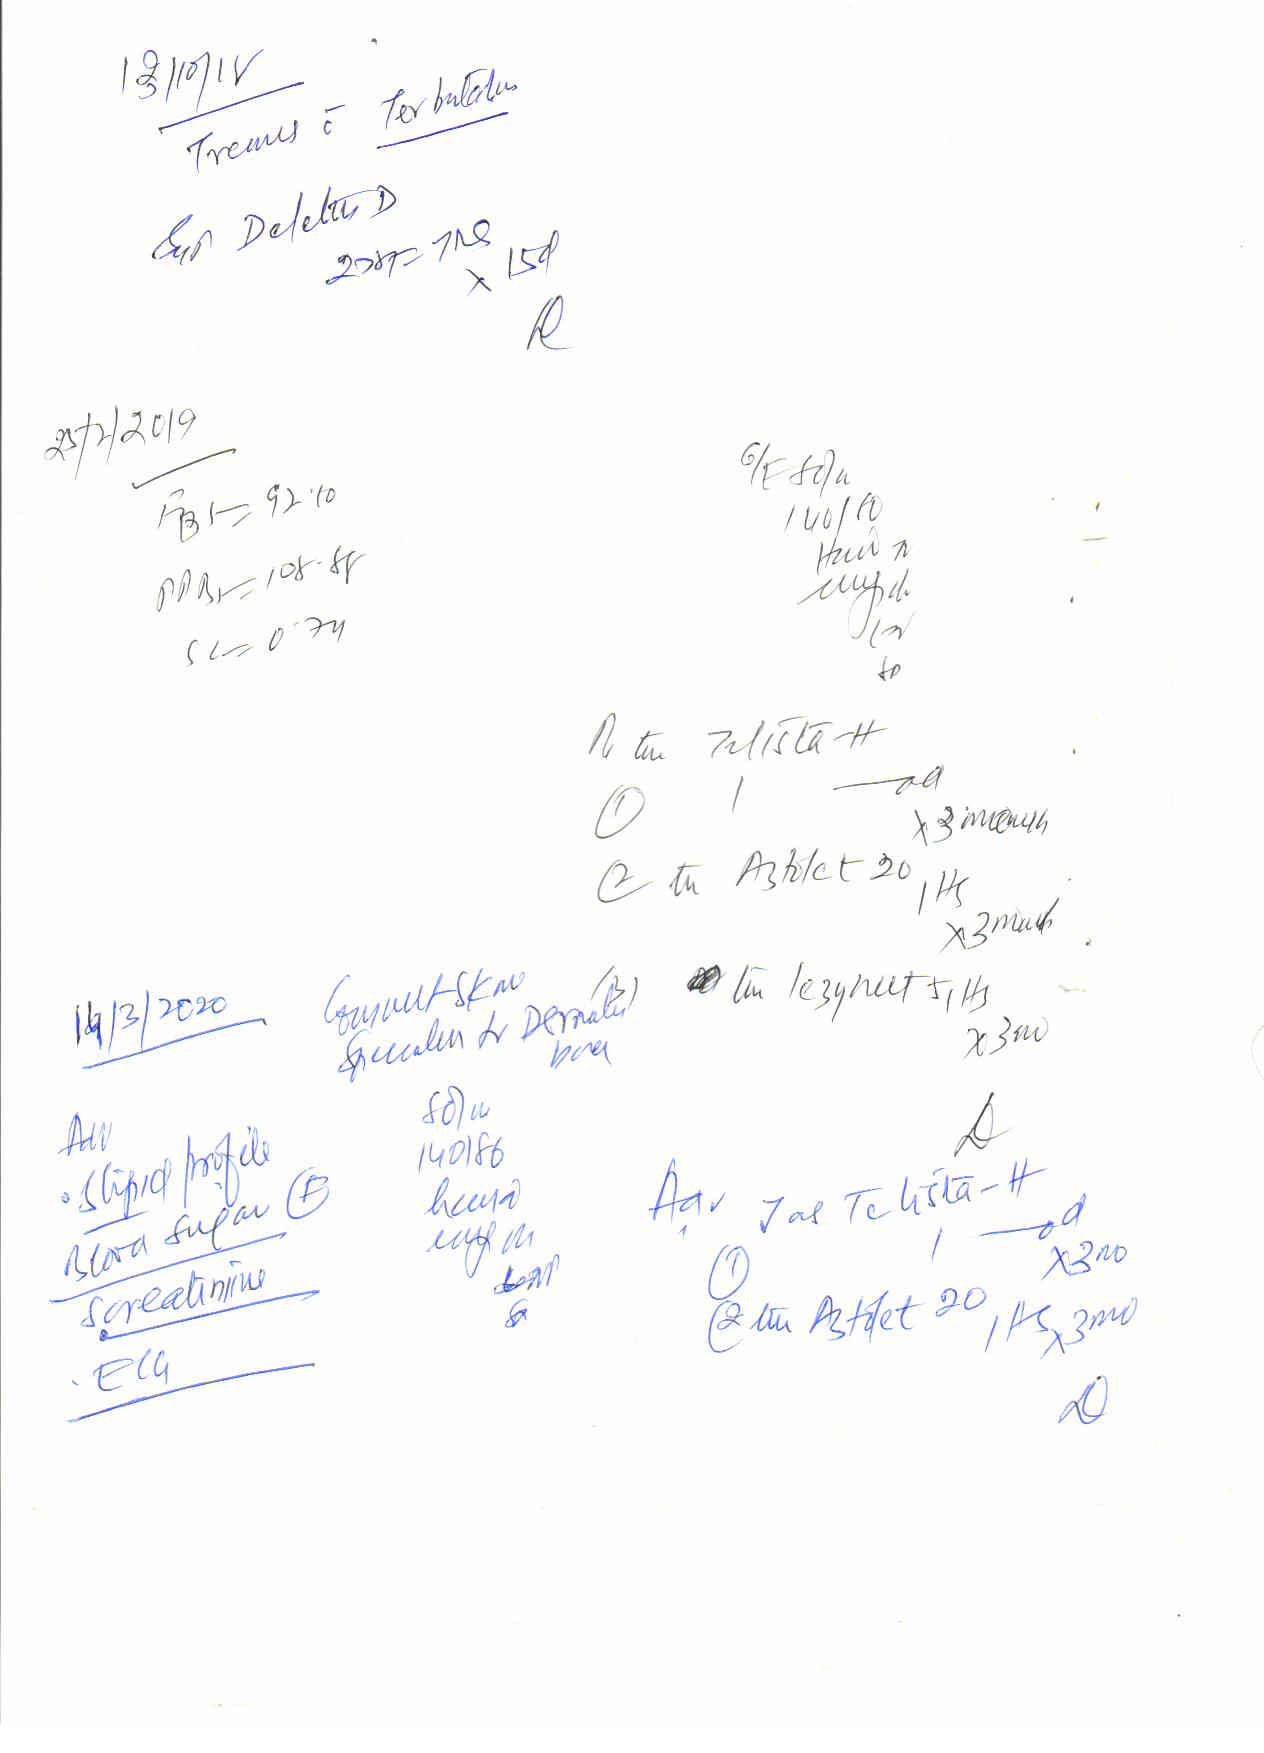 13/10/18
Tremors c̄ Terbutaline
Syp Deletus D
2tsf = TDS
x 15d
25/2/2019
FBS = 92.10
PPBS = 108.88
SC = 0.74
O/E 80/m
140/80
Rx Tab Telista-H
① 1 → od
x 3 month
② tab Aztolet 20
1 HS
x 3 month
(3) tab lezyncet 5, 1 HS
x 3 mo
14/3/2020
Consult Skin
Specialist for Dermatitis
Adv
S lipid profile
Blood sugar (F)
S creatinine
ECG
80/m
140/86
Adv Tab Telista-H
① 1 → od
x 3 mo
② tab Aztolet 20
1 HS x 3 mo